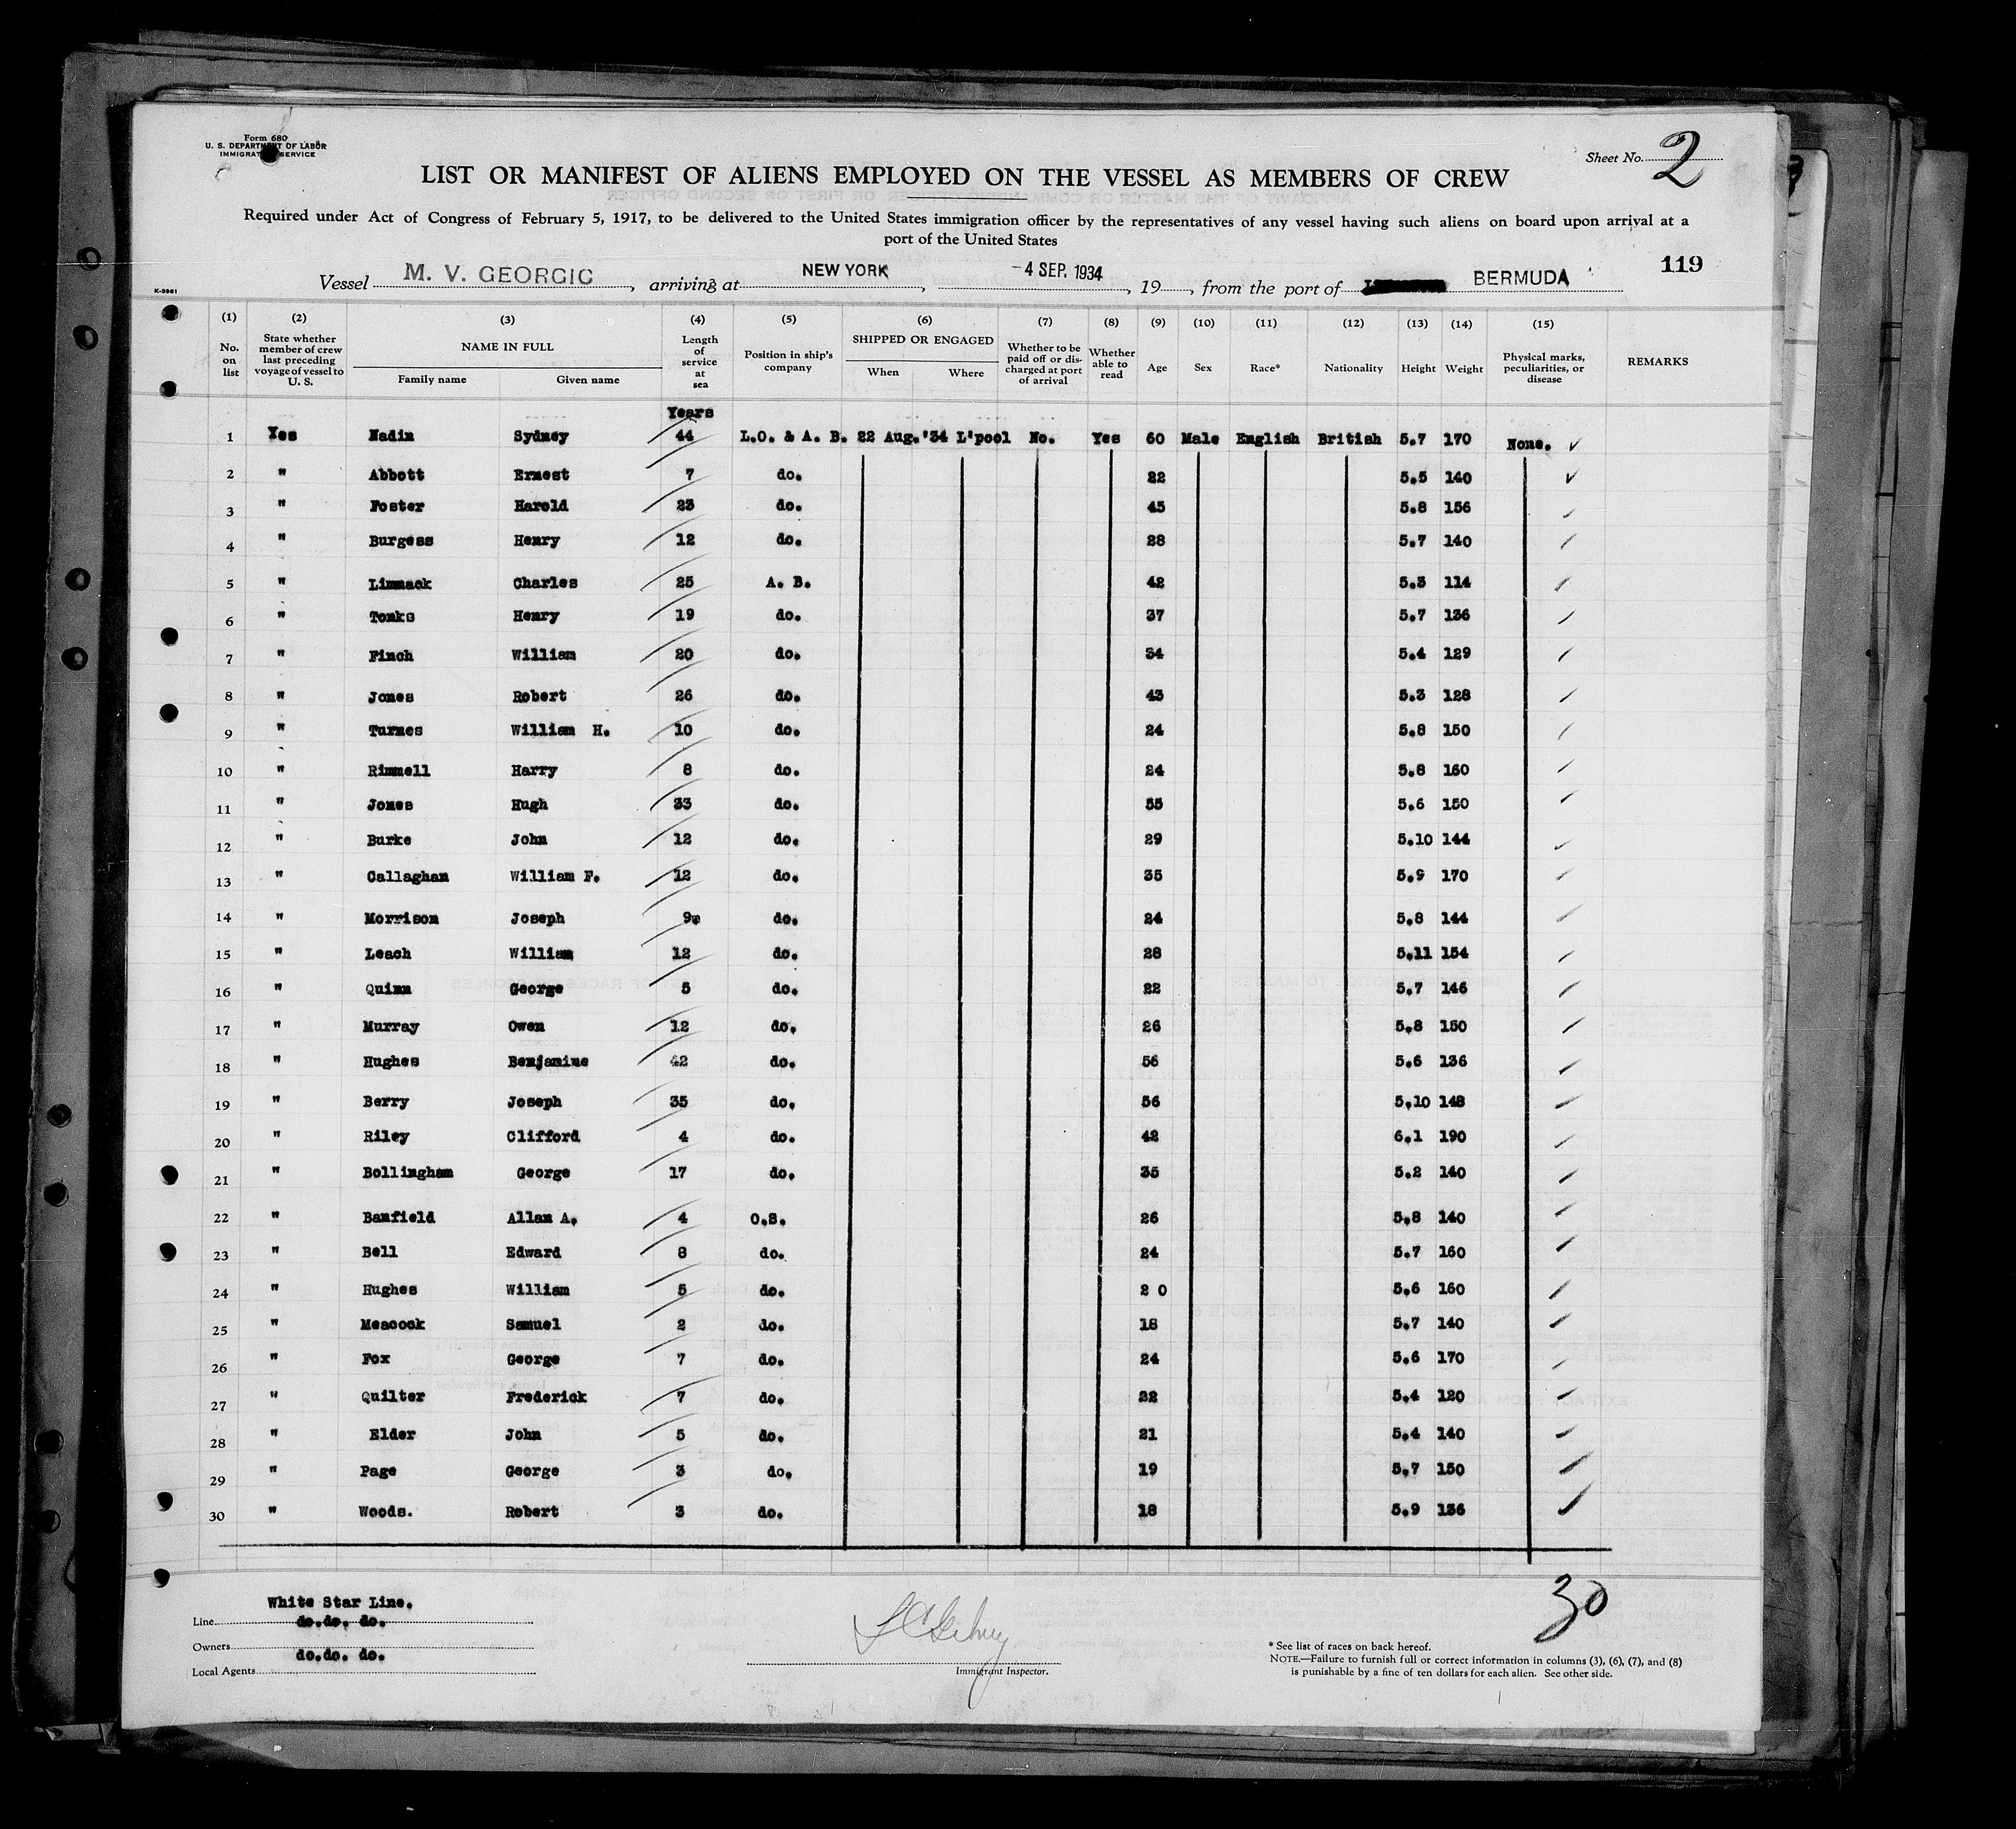 Form 680
U. S. DEPARTMENT OF LABOR
IMMIGRATION SERVICE
Sheet No. 2
LIST OR MANIFEST OF ALIENS EMPLOYED ON THE VESSEL AS MEMBERS OF CREW
Required under Act of Congress of February 5, 1917, to be delivered to the United States immigration officer by the representatives of any vessel having such aliens on board upon arrival at a
port of the United States
119
Vessel M. V. GEORGIC, arriving at NEW YORK, -4 SEP. 1934, 19, from the port of BERMUDA
K-3961
(1) No. on list (2) State whether member of crew last preceding voyage of vessel to U. S. (3) NAME IN FULL Family name Given name (4) Length of service at sea (5) Position in ship's company (6) SHIPPED OR ENGAGED When Where (7) Whether to be paid off or discharged at port of arrival (8) Whether able to read (9) Age (10) Sex (11) Race* (12) Nationality (13) Height (14) Weight (15) Physical marks, peculiarities, or disease REMARKS
Years
1 Yes Nadin Sydney 44 L.O. & A. B. 22 Aug.'34 L'pool No. Yes 60 Male English British 5.7 170 None.
2 " Abbott Ernest 7 do. 22 5.5 140
3 " Foster Harold 23 do. 45 5.8 156
4 " Burgess Henry 12 do. 28 5.7 140
5 " Limmack Charles 25 A. B. 42 5.3 114
6 " Tonks Henry 19 do. 37 5.7 136
7 " Finch William 20 do. 34 5.4 129
8 " Jones Robert 26 do. 43 5.3 128
9 " Turnes William H. 10 do. 24 5.8 150
10 " Rimmell Harry 8 do. 24 5.8 160
11 " Jones Hugh 33 do. 55 5.6 150
12 " Burke John 12 do. 29 5.10 144
13 " Callaghan William F. 12 do. 35 5.9 170
14 " Morrison Joseph 9 do. 24 5.8 144
15 " Leach William 12 do. 28 5.11 154
16 " Quinn George 5 do. 22 5.7 146
17 " Murray Owen 12 do. 26 5.8 150
18 " Hughes Benjamine 42 do. 56 5.6 136
19 " Berry Joseph 35 do. 56 5.10 148
20 " Riley Clifford 4 do. 42 6.1 190
21 " Bollingham George 17 do. 35 5.2 140
22 " Banfield Allan A. 4 O.S. 26 5.8 140
23 " Bell Edward 8 do. 24 5.7 160
24 " Hughes William 5 do. 2 0 5.6 160
25 " Meacock Samuel 2 do. 18 5.7 140
26 " Fox George 7 do. 24 5.6 170
27 " Quilter Frederick 7 do. 22 5.4 120
28 " Elder John 5 do. 21 5.4 140
29 " Page George 3 do. 19 5.7 150
30 " Woods. Robert 3 do. 18 5.9 136
30
Line White Star Line.
Owners do.do. do.
Local Agents do.do. do.
Immigrant Inspector.
* See list of races on back hereof.
NOTE.—Failure to furnish full or correct information in columns (3), (6), (7), and (8)
is punishable by a fine of ten dollars for each alien. See other side.